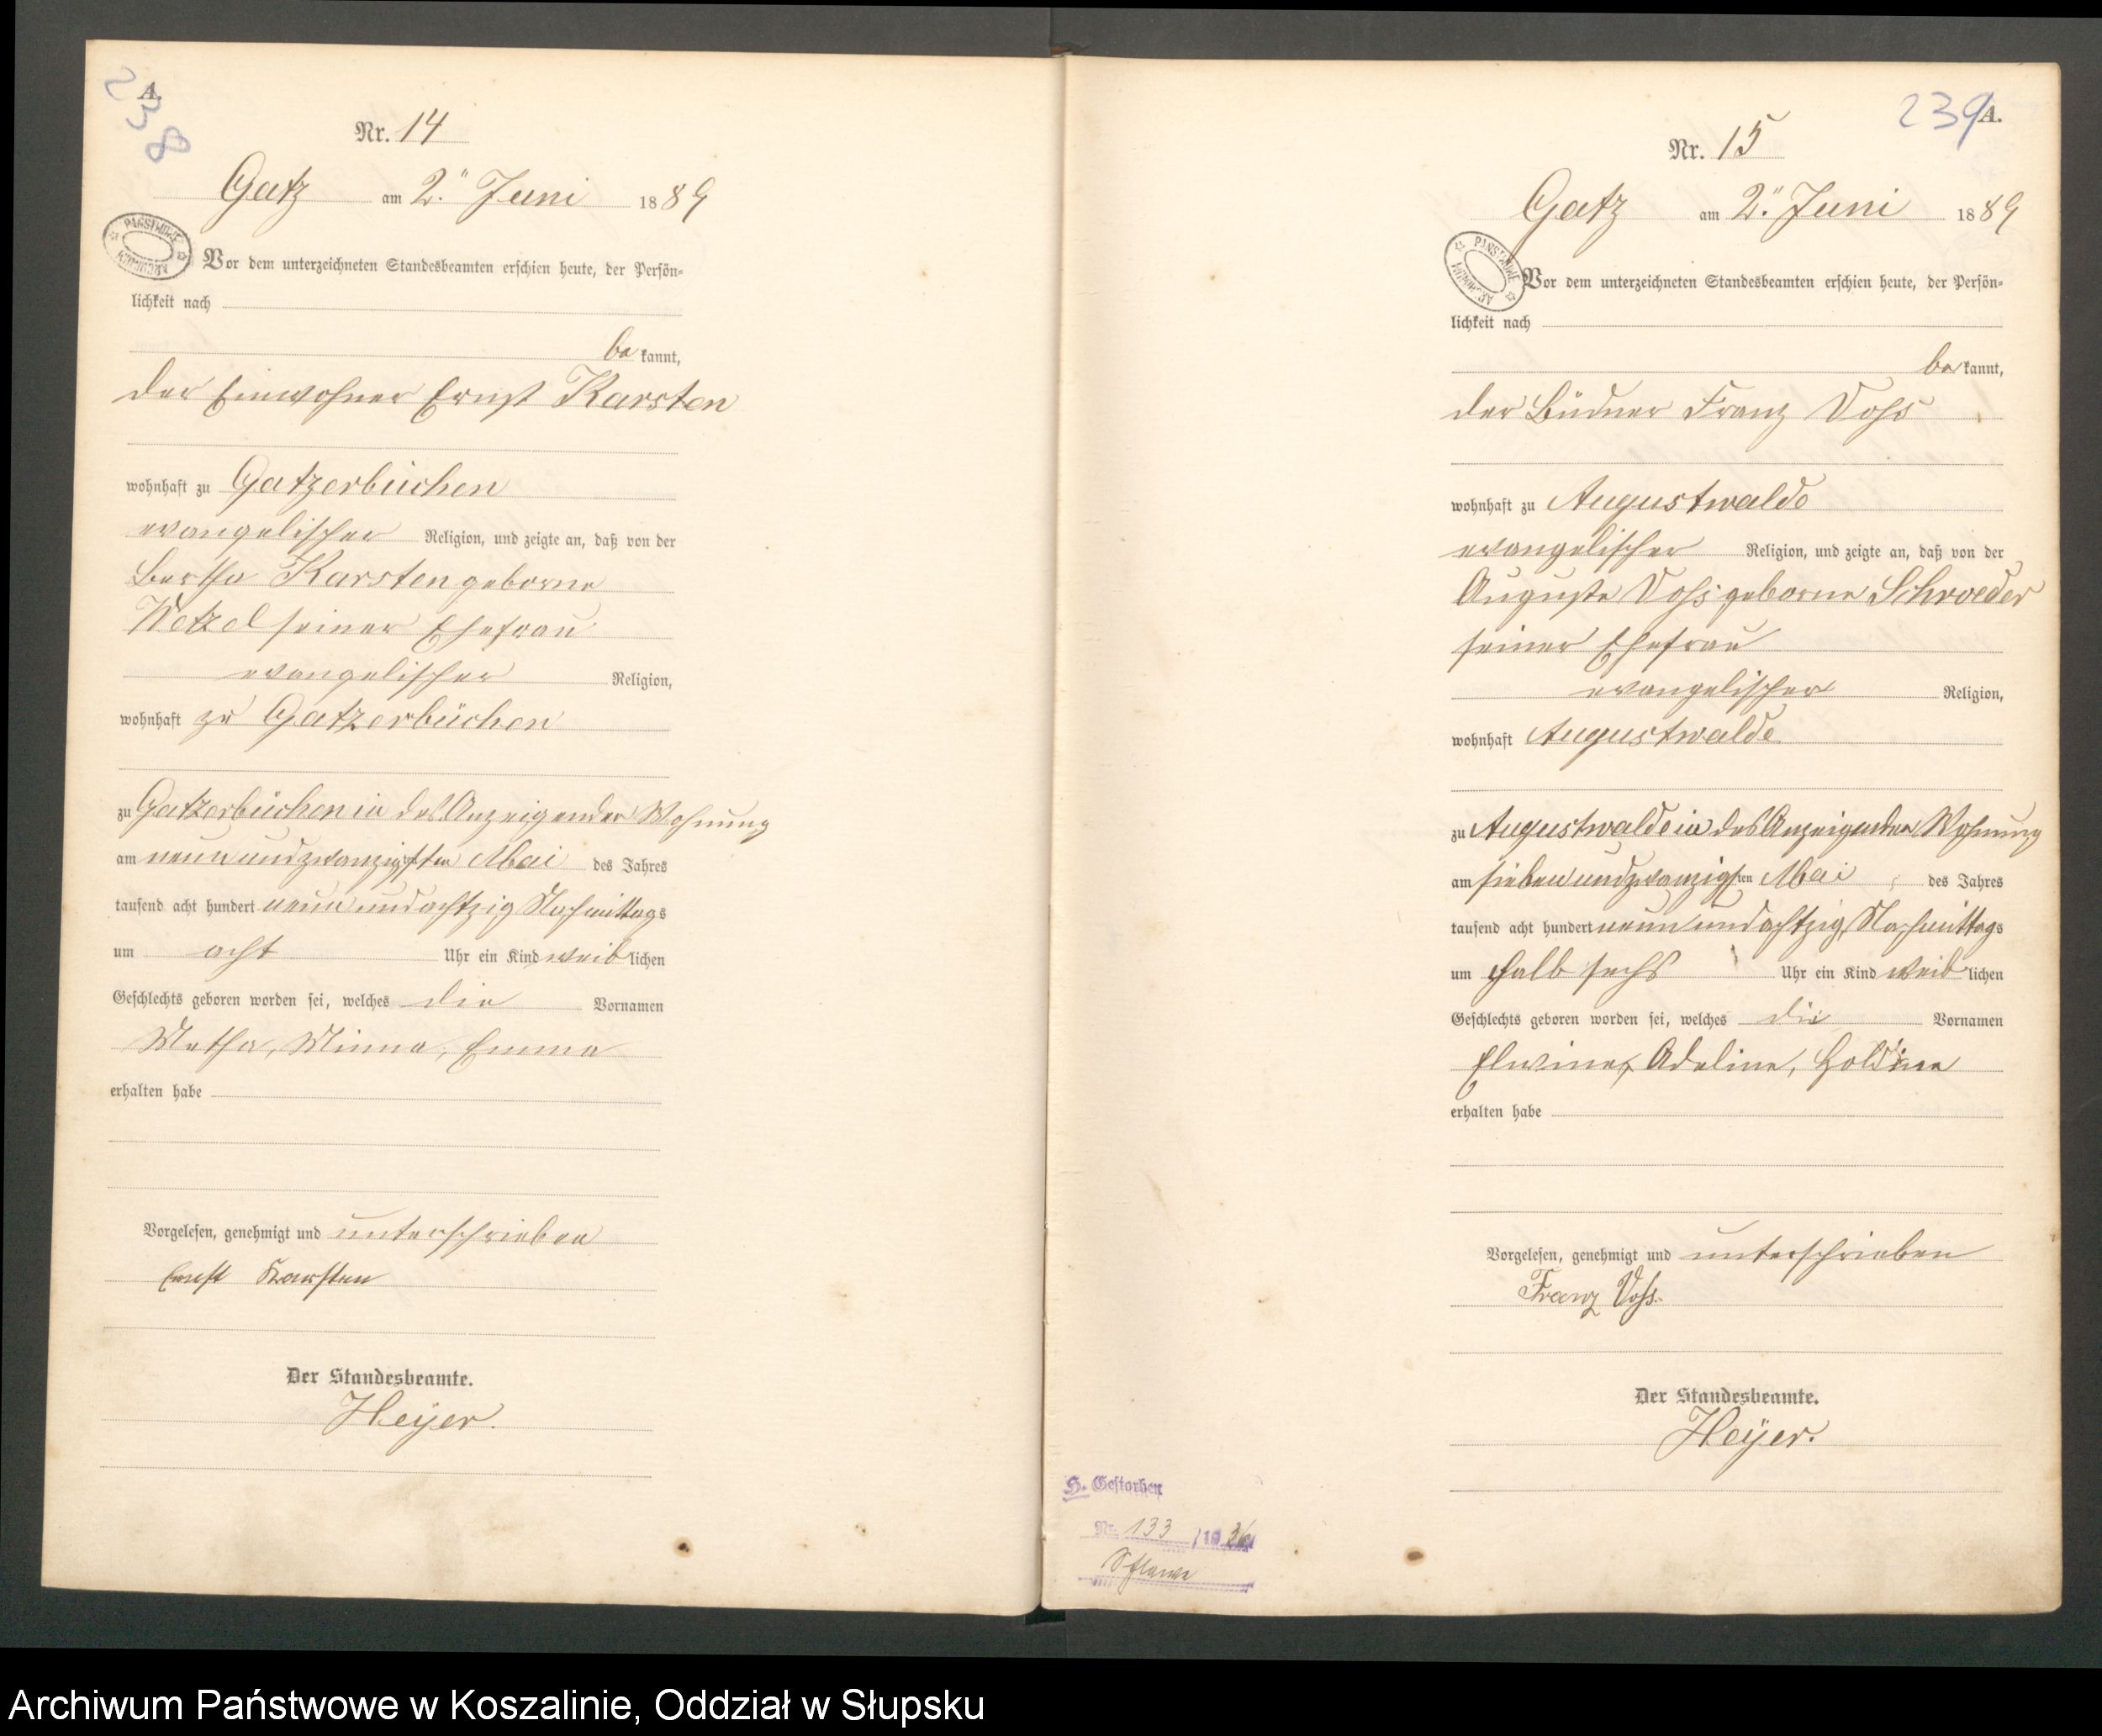 238
A.
Nr. 14
Gatz am 2. Juni 1889
PAŃSTWOWE ARCHIWUM
Vor dem unterzeichneten Standesbeamten erschien heute, der Persön=
lichkeit nach
be kannt,
der Einwohner Ernst Karsten
wohnhaft zu Gatzerbüchen
evangelischer Religion, und zeigte an, daß von der
Bertha Karsten geborne
Wetzel seiner Ehefrau
evangelischer Religion,
wohnhaft zu Gatzerbüchen
zu Gatzerbüchen in des Anzeigenden Wohnung
am neun und zwanzigsten Mai des Jahres
tausend acht hundert neun und achtzig Nachmittags
um acht Uhr ein Kind weib lichen
Geschlechts geboren worden sei, welches die Vornamen
Metha, Minna, Emma
erhalten habe
Vorgelesen, genehmigt und unterschrieben
Ernst Karsten
Der Standesbeamte.
Heÿer.
239
A.
Nr. 15
Gatz am 2. Juni 1889
PAŃSTWOWE ARCHIWUM
Vor dem unterzeichneten Standesbeamten erschien heute, der Persön=
lichkeit nach
be kannt,
der Büdner Franz Voss
wohnhaft zu Augustwalde
evangelischer Religion, und zeigte an, daß von der
Auguste Voss geborne Schroeder
seiner Ehefrau
evangelischer Religion,
wohnhaft Augustwalde
zu Augustwalde in des Anzeigenden Wohnung
am sieben und zwanzigsten Mai des Jahres
tausend acht hundert neun und achtzig Nachmittags
um halb sechs Uhr ein Kind weib lichen
Geschlechts geboren worden sei, welches die Vornamen
Elwine, Adeline, Holdine
erhalten habe
Vorgelesen, genehmigt und unterschrieben
Franz Voss.
Der Standesbeamte.
Heÿer.
H. Gestorben
Nr. 133 /1936
Archiwum Państwowe w Koszalinie, Oddział w Słupsku